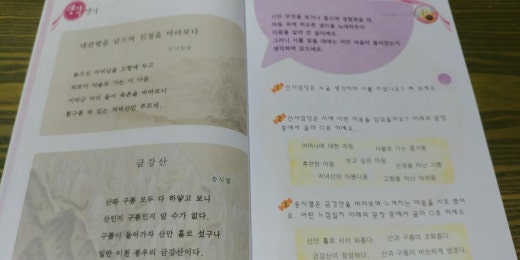 생각
대관령을 넘으며 친정을 바라보다
신사임당
늙으신 어머님을 고향에 두고
외로이 서울로 가는 이 마음
이따금 머리 들어 북촌을 바라보니
흰구름 떠 있는 저녁산만 푸르네.
금강산
송시열
산과 구름 모두 다 하얗고 보니
산인지 구름인지 알 수가 없다.
구름이 돌아가자 산만 홀로 섰구나
일만 이천 봉우리 금강산이다.
시란 무엇을 보거나 들으며 경험했을 때,
마음 속에 떠오른 생각을 노래하듯이
리듬을 살려 쓴 글이에요.
그러니 시를 읽을 때에는 어떤 마음이 들어있는지
생각하며 읽으세요.
1 신사임당은 누굴 생각하며 시를 지었나요? 써 보세요.
2 신사임당은 시에 어떤 마음을 담았을까요? 아래의 문장
중에서 골라 ○표 하세요.
어머니에 대한 걱정 서울로 가는 즐거움
후련한 마음 보고 싶은 마음 친정을 떠난 기쁨
저녁산의 아름다움 고향을 떠난 아쉬움
3 송시열은 금강산을 바라보며 느껴지는 마음을 시로 썼어
요. 어떤 느낌일지 아래의 문장 중에서 골라 ○표 하세요.
산만 홀로 서서 외롭다. 산과 구름이 조화롭다.
금강산이 장엄하다. 산과 구름이 비슷하게 생겼다.